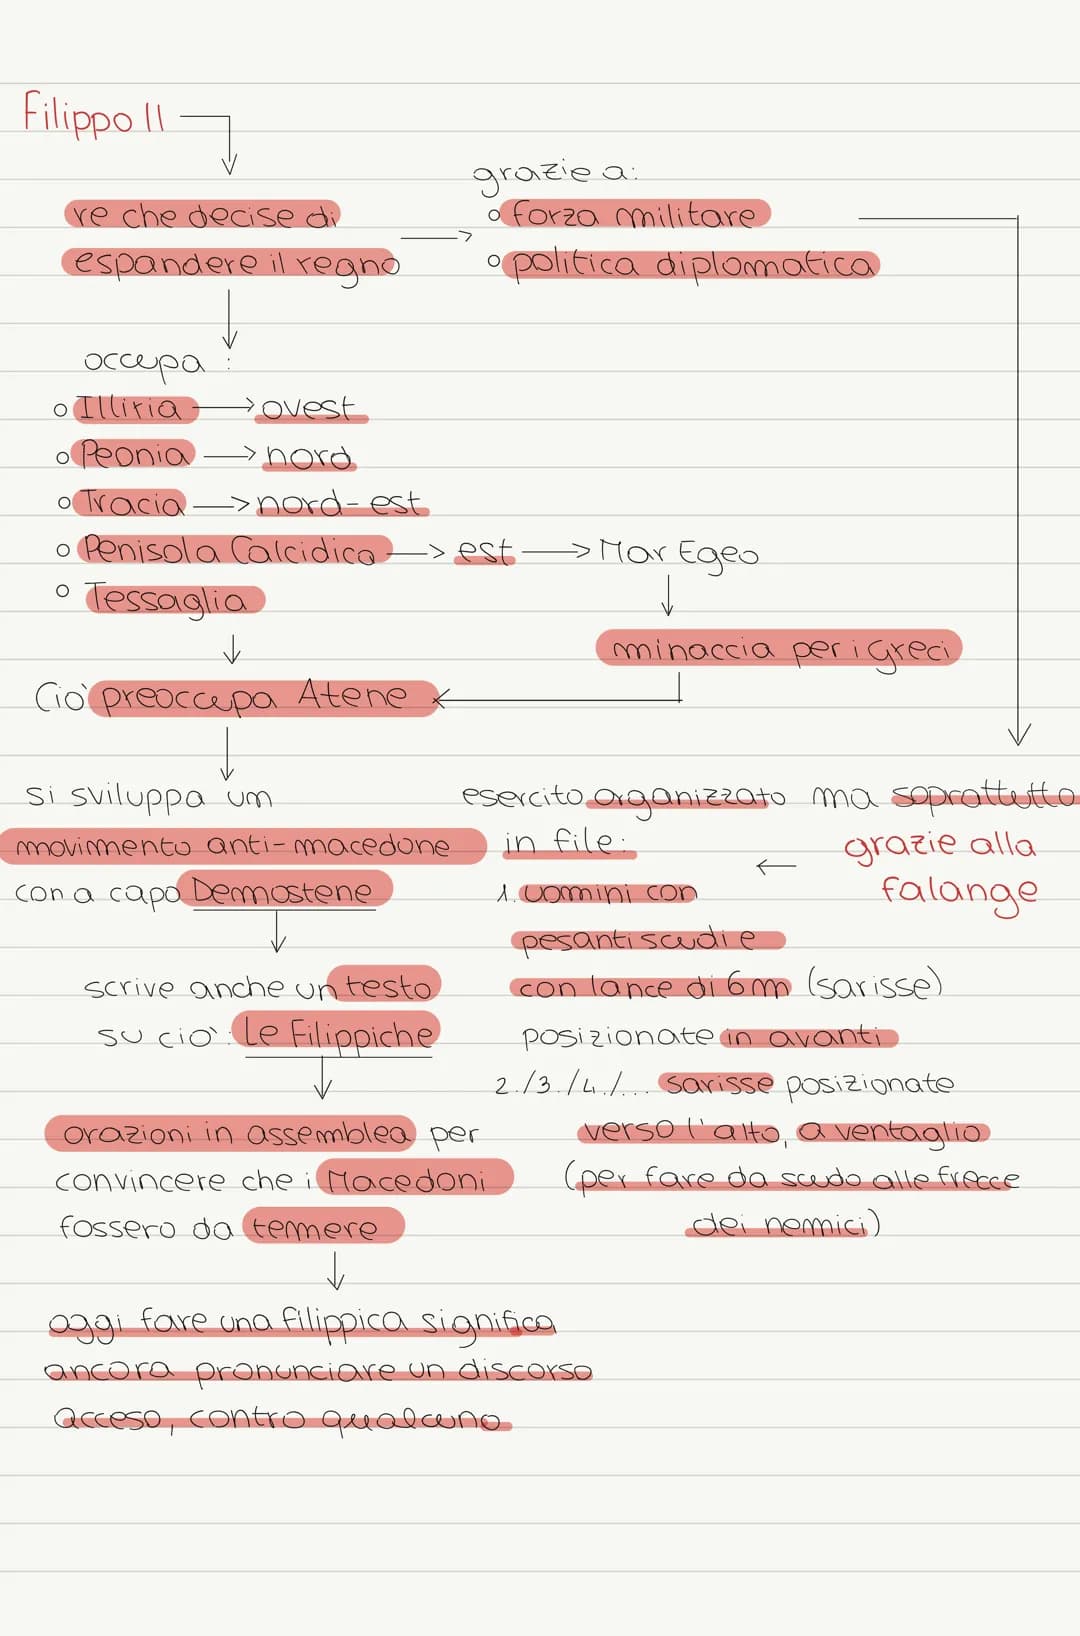 Filippo II
grazie a:
re che decise di
espandere il regno
forza militare
politica diplomatica
occupa :
Illiria → ovest
Peonia → nord
Tracia → nord-est
Penisola Calcidica → est → Mar Egeo
Tessaglia
minaccia per i Greci
Ciò preoccupa Atene
si sviluppa un
movimento anti-macedone
con a capo Demostene
scrive anche un testo
su ciò: Le Filippiche
orazioni in assemblea per
convincere che i Macedoni
fossero da temere
oggi fare una filippica significa
ancora pronunciare un discorso
acceso, contro qualcuno
esercito organizzato ma soprattutto
grazie alla
falange
in file:
1. uomini con
pesanti scudi e
con lance di 6 m (sarisse)
posizionate in avanti
2./3./4./... sarisse posizionate
verso l'alto, a ventaglio
(per fare da scudo alle frecce
dei nemici)